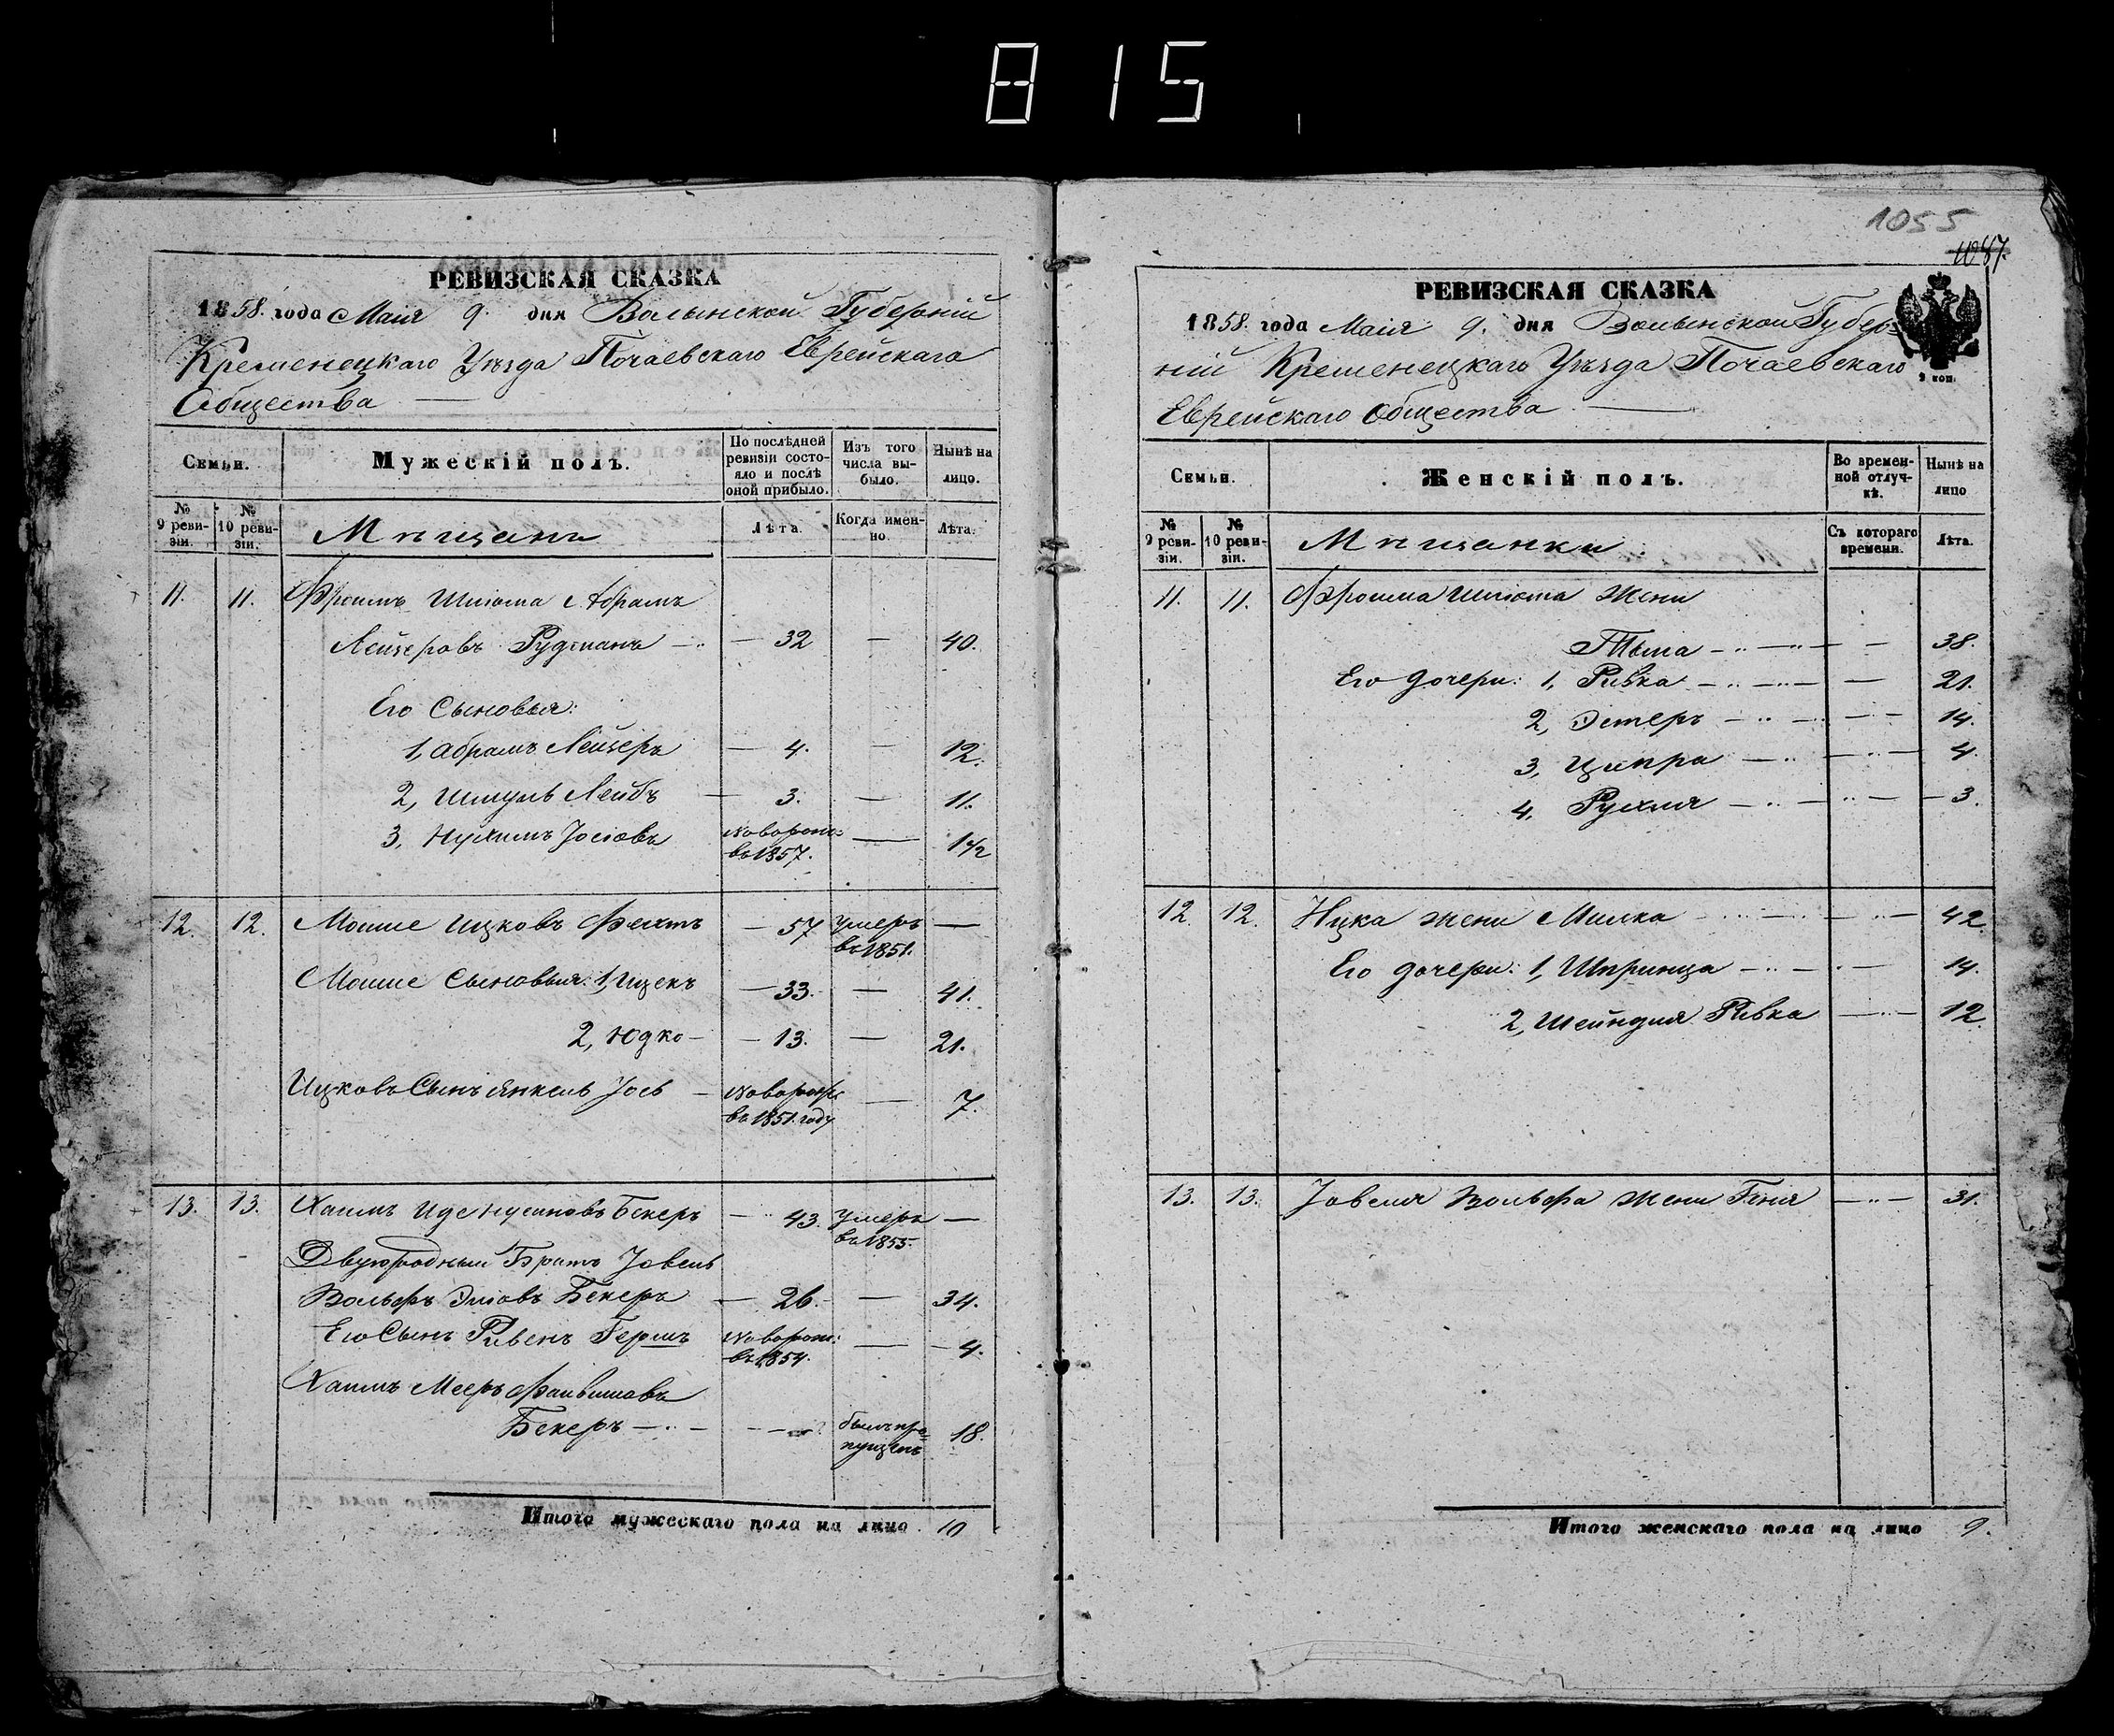 815
РЕВИЗСКАЯ СКАЗКА
1858. года Маія 9. дня Волынской Губерніи
Кременецкаго Уѣзда Почаевскаго Еврейскаго
Общества —
Семьи.
Мужескій полъ.
По послѣдней ревизіи состояло и послѣ оной прибыло.
Изъ того числа выбыло.
Нынѣ на лицо.
№ 9 ревизіи.
№ 10 ревизіи.
Мѣщанъ
Лѣта.
Когда именно.
Лѣта.
11. 11. Фроимъ Шлюма Абрамъ
Лейзеровъ Рудманъ — 32 — 40.
Его Сыновья:
1, Абрамъ Лейзеръ — 4. — 12.
2, Шмуль Лейбъ — 3. — 11.
3, Нухимъ Іосіовъ Новорож: въ 1857. — 1 1/2
12. 12. Мошие Ицковъ Фехтъ — 57 умеръ въ 1851. —
Мошие Сыновья: 1, Ицекъ — 33. — 41.
2, Юдко — 13. — 21.
Ицковъ Сынъ Янкель Іось — Новорож: въ 1851. году — 7.
13. 13. Хаимъ Иде Нусиновъ Бекеръ — 43. умеръ въ 1855. —
Двуюродный Братъ Іовель
Вольфъ Эліовъ Бекеръ — 26. — 34.
Его Сынъ Ривенъ Гершъ Новорож: въ 1854. — 4.
Хаимъ Мееръ Файвишовъ
Бекеръ — былъ пропущенъ 18.
Итого мужескаго пола на лицо. 10
1055
1087.
РЕВИЗСКАЯ СКАЗКА
9 коп.
1858. года Маія 9. дня Волынской Губер-
ніи Кременецкаго Уѣзда Почаевскаго
Еврейскаго Общества —
Семьи.
Женскій полъ.
Во временной отлучкѣ.
Нынѣ на лицо
№ 9 ревизіи.
№ 10 ревизіи.
Мѣщанки.
Съ котораго времени.
Лѣта.
11. 11. Фроима Шлюма Жена
Тыма — 38.
Его дочери: 1, Ривка — 21.
2, Эстеръ — 14.
3, Ципра — 4.
4, Рухля — 3.
12. 12. Ицка жена Милка — 42.
Его дочери: 1, Шпринца — 14.
2, Шейндля Ривка — 12.
13. 13. Іовеля Вольфа жена Геня — 31.
Итого женскаго пола на лицо 9.